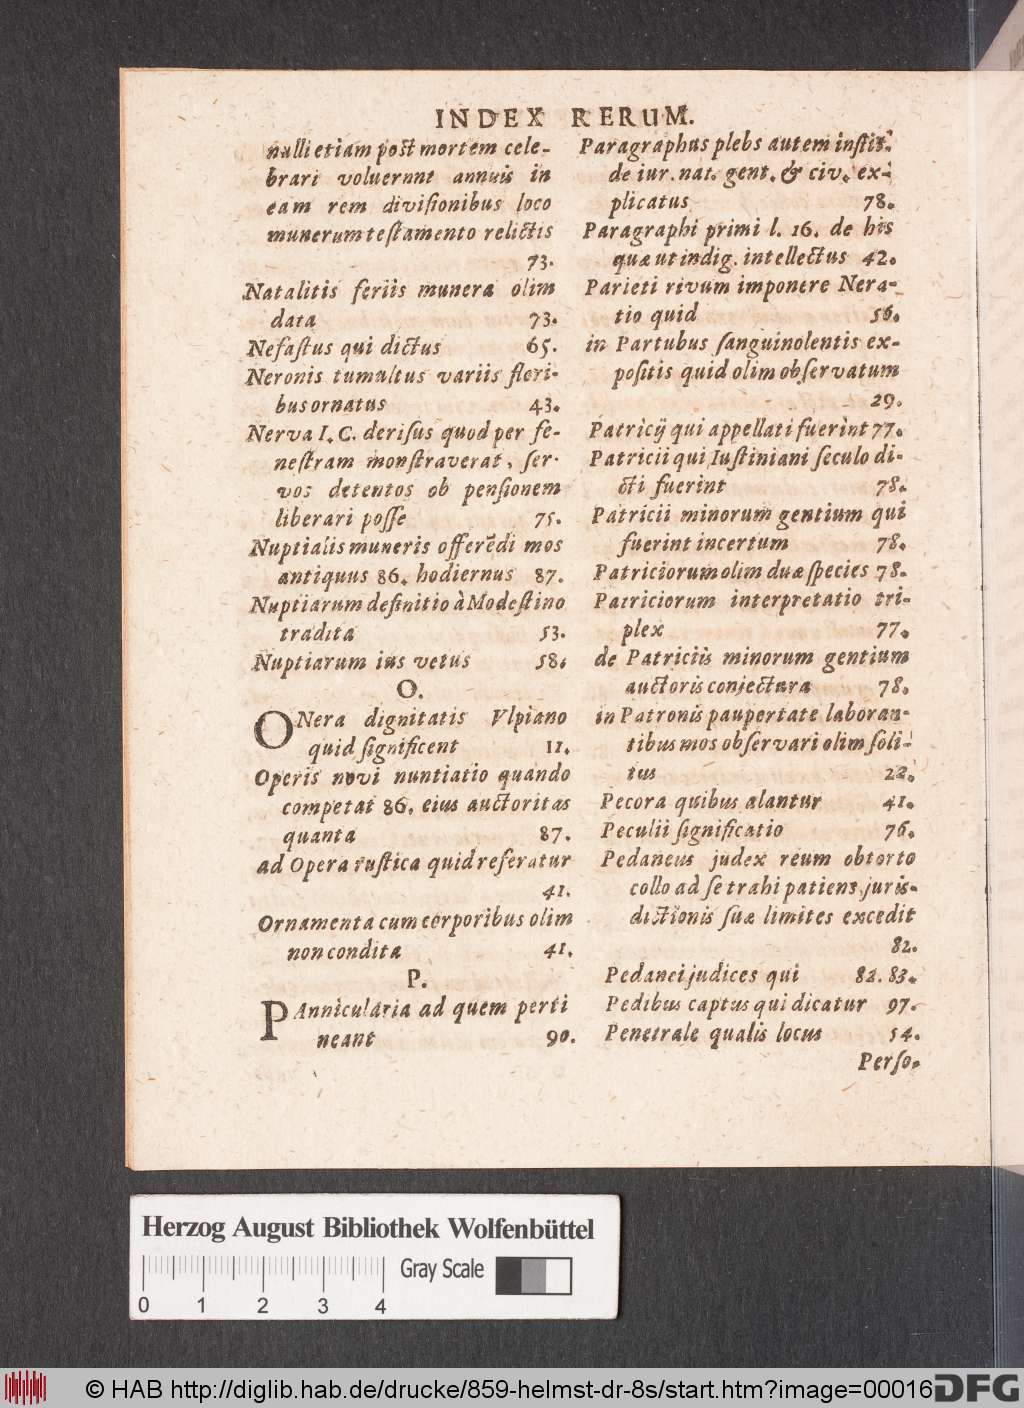 INDEX RERUM.
nulli etiam post mortem cele-
brari voluerunt annuis in
eam rem divisionibus loco
munerum testamento relictis
73.
Natalitis feriis munera olim
data 73.
Nefastus qui dictus 65.
Neronis tumultus variis flori-
bus ornatus 43.
Nerva I. C. derisus quod per fe-
nestram monstraverat, ser-
vos detentos ob pensionem
liberari posse 75.
Nuptialis muneris offerēdi mos
antiquus 86. hodiernus 87.
Nuptiarum definitio à Modestino
tradita 53.
Nuptiarum ius vetus 58.
O.
ONera dignitatis Vlpiano
quid significent 11.
Operis novi nuntiatio quando
competat 86. eius auctoritas
quanta 87.
ad Opera rustica quid referatur
41.
Ornamenta cum corporibus olim
non condita 41.
P.
PAnnicularia ad quem perti
neant 90.
Paragraphus plebs autem instit.
de iur. nat. gent. & civ. ex-
plicatus 78.
Paragraphi primi l. 16. de his
quæ ut indig. intellectus 42.
Parieti rivum imponere Nera-
tio quid 56.
in Partubus sanguinolentis ex-
positis quid olim observatum
29.
Patricij qui appellati fuerint 77.
Patricii qui Iustiniani seculo di-
cti fuerint 78.
Patricii minorum gentium qui
fuerint incertum 78.
Patriciorum olim duæ species 78.
Patriciorum interpretatio tri-
plex 77.
de Patriciis minorum gentium
auctoris conjectura 78.
in Patronis paupertate laboran-
tibus mos observari olim soli-
tus 22.
Pecora quibus alantur 41.
Peculii significatio 76.
Pedaneus judex reum obtorto
collo ad se trahi patiens juris-
dictionis suæ limites excedit
82.
Pedanei judices qui 82. 83.
Pedibus captus qui dicatur 97.
Penetrale qualis locus 54.
Perso.
Herzog August Bibliothek Wolfenbüttel
Gray Scale
0 1 2 3 4
© HAB http://diglib.hab.de/drucke/859-helmst-dr-8s/start.htm?image=00016
DFG